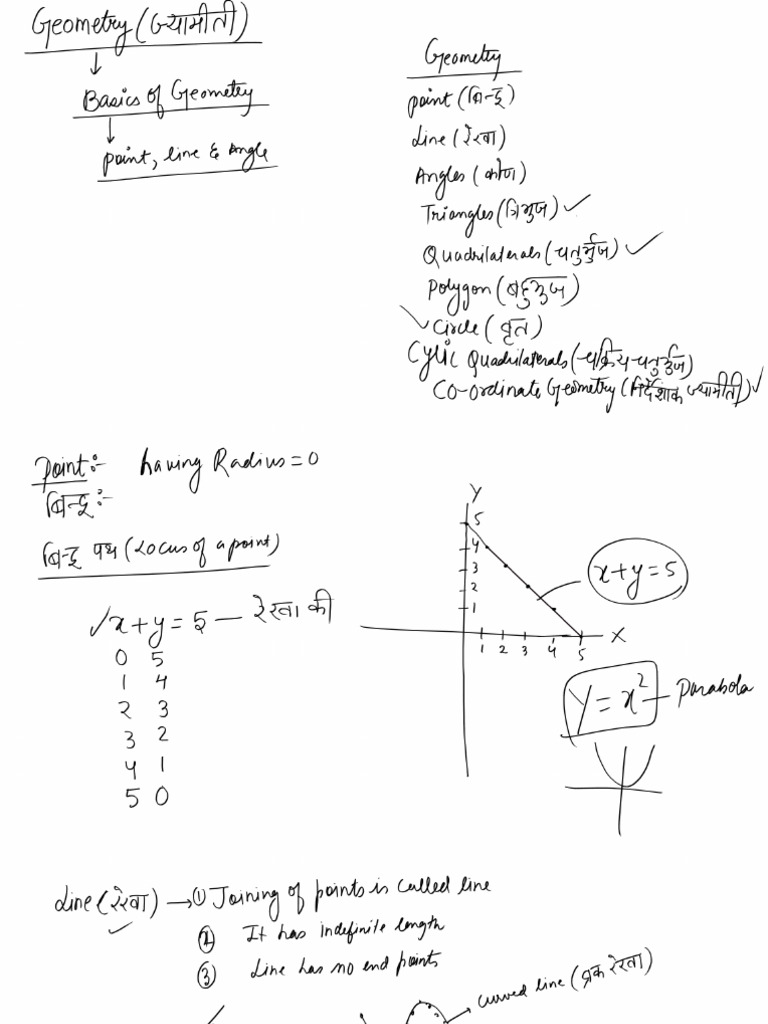 Geometry (ज्यामीती)
Basics of Geometry
point, line & Angle
Geometry
point (बिन्दु)
Line (रेखा)
Angles (कोण)
Triangles (त्रिभुज) ✓
Quadrilaterals (चतुर्भुज) ✓
Polygon (बहुभुज)
✓ Circle (वृत)
Cylic Quadrilaterals (चक्रिय चतुर्भुज)
Co-ordinate Geometry (निर्देशांक ज्यामीती) ✓
Point:- having Radius = 0
बिन्दु:-
बिन्दु पथ (Locus of a point)
✓ x + y = 5 — रेखा की
0 5
1 4
2 3
3 2
4 1
5 0
Y
5
4
3
2
1
1 2 3 4 5
X
x + y = 5
Y = x² — Parabola
Line (रेखा) → ① Joining of points is called line
② It has indefinite length
③ Line has no end points
curved line (वक्र रेखा)